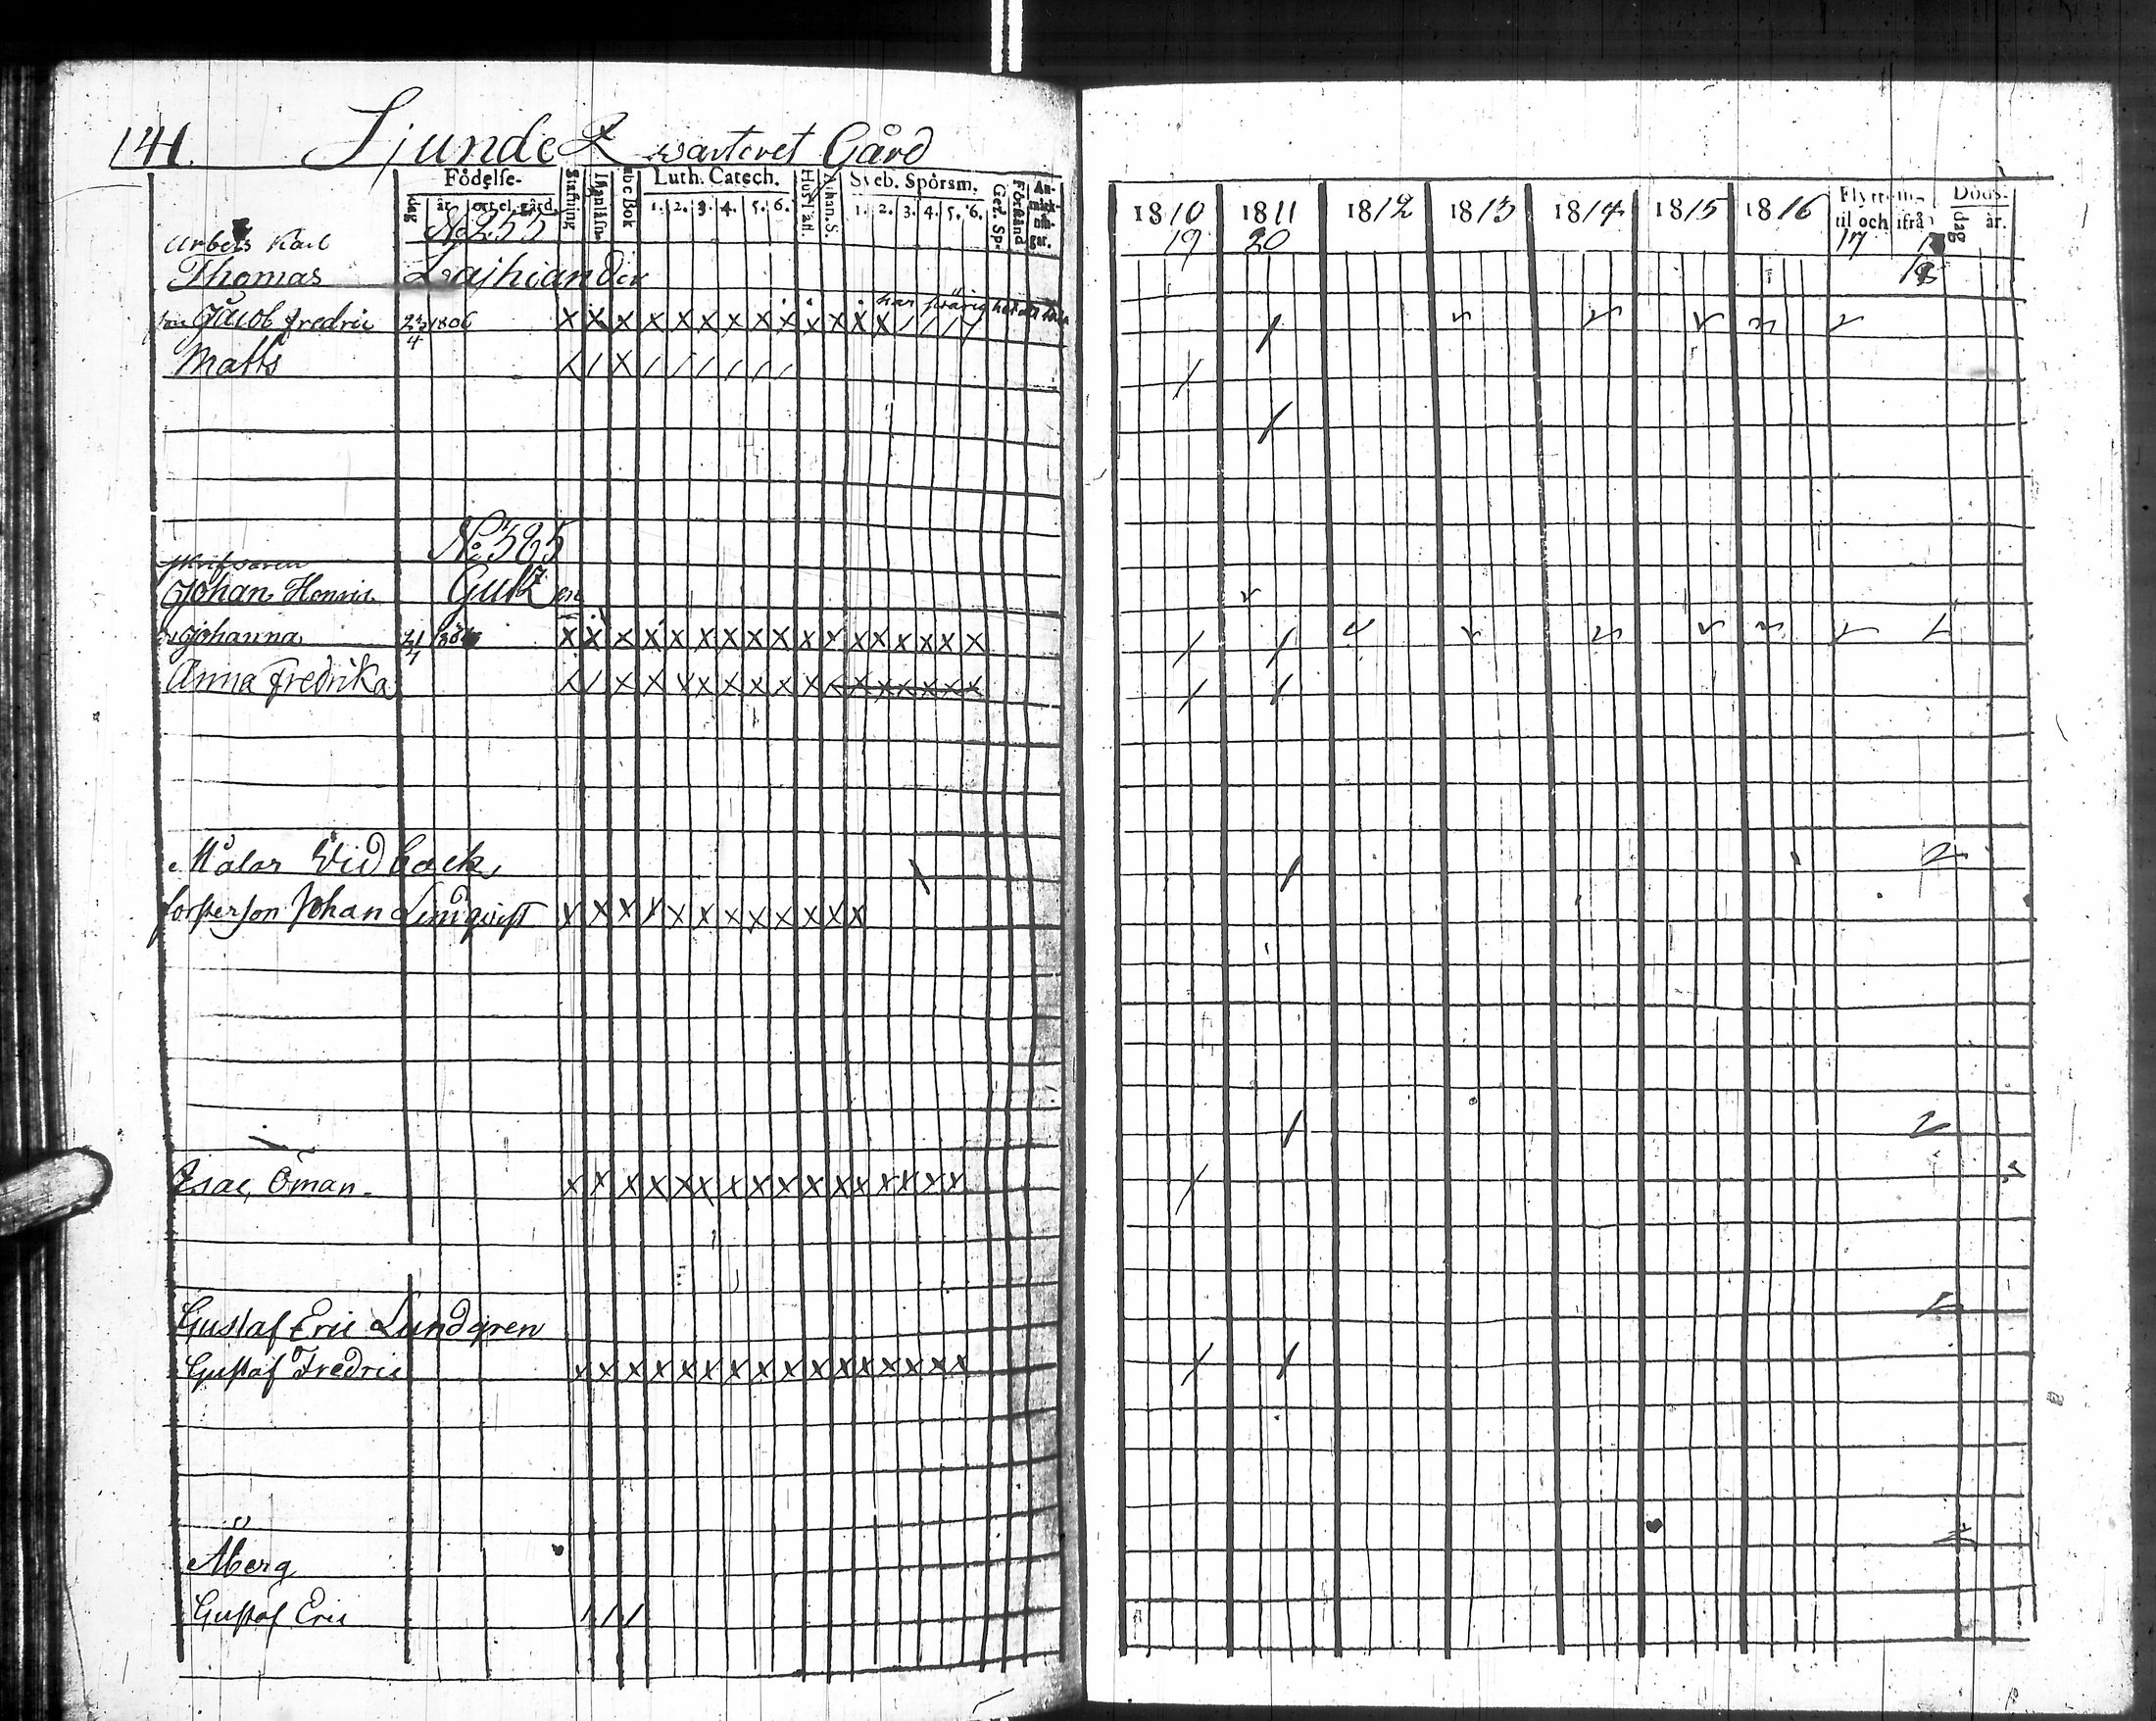 141. Sjunde Qwarteret Gård
Födelse- Stafning Abc Bok Luth. Catech. Hust. Athan. S. Sveb. Spörsm. Gez. Sp. Förstånd An-märk-nin-gar.
dag år ort el. gård. 1. 2. 3. 4. 5. 6. 1. 2. 3. 4. 5. 6.
1810 1811 1812 1813 1814 1815 1816 Flyttnin- Döds-
til och ifrån dag år.
19 20 17 18
No 255
Arbets Karl
Thomas Lajhiander
son Jacob Fredric 1806 har svårighet att
Matts
No 365
Skrifvaren
Johan Henric
Johanna
Anna Fredrika
Målar Widback
Johan Lindqvist
Esac Öman.
Gustaf Eric Lundgren
Gustaf Fredric
Åberg
Gustaf Eric